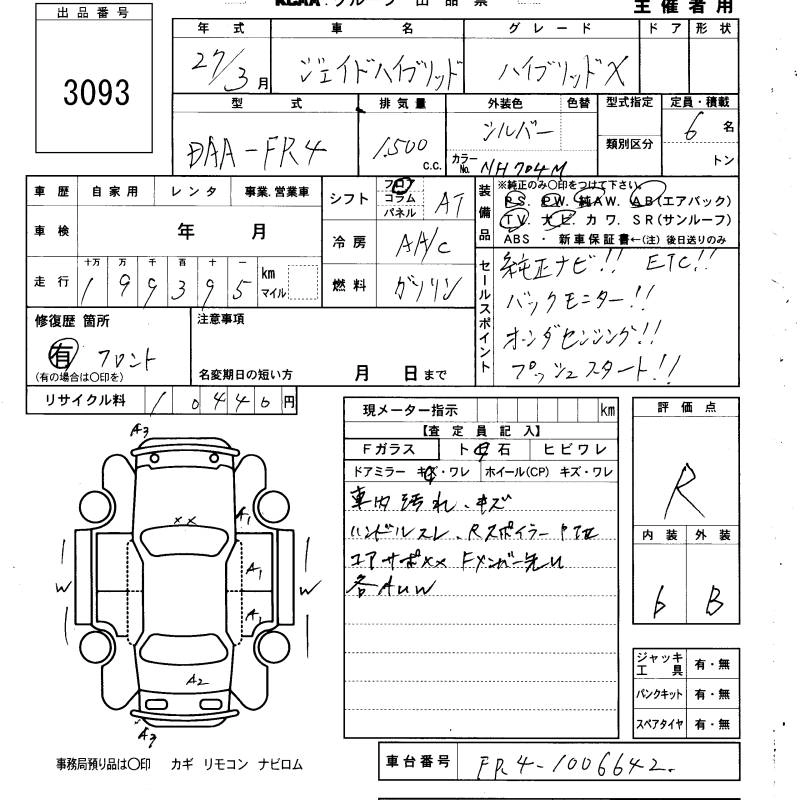 KCAA・グループ 出品票
主催者用
出品番号
3093
年式 車名 グレード ドア 形状
27/3月 ジェイドハイブリッド ハイブリッドX
型式 排気量 外装色 色替 型式指定 定員・積載
DAA-FR4 1,500 c.c. シルバー カラーNo. NH704M 類別区分 6名 トン
車歴 自家用 レンタ 事業、営業車
車検 年 月
走行 十万 万 千 百 十 一 km マイル
199395
シフト フロ コラム パネル AT
冷房 AA/C
燃料 ガソリン
装備品 ※純正のみ〇印をつけて下さい。
PS. PW. 純AW. AB(エアバック)
TV. ナビ カワ. SR(サンルーフ)
ABS ・ 新車保証書←(注) 後日送りのみ
セールスポイント
純正ナビ!! ETC!!
バックモニター!!
ホンダセンシング!!
プッシュスタート!!
修復歴 箇所
有 フロント
(有の場合は〇印を)
注意事項
名変期日の短い方 月 日まで
リサイクル料 10440円
現メーター指示 km
【査定員記入】
Fガラス ト石 ヒビワレ
ドアミラー キズ・ワレ ホイール(CP) キズ・ワレ
車内汚れ、キズ
ハンドルスレ、Rスポイラー
コアサポXX Fメンバー先U
各AUW
評価点
R
内装 外装
6 B
ジャッキ工具 有・無
パンクキット 有・無
スペアタイヤ 有・無
A3
XX
A1
W
A1
W
A1
A2
A3
事務局預り品は〇印 カギ リモコン ナビロム
車台番号 FR4-1006642.